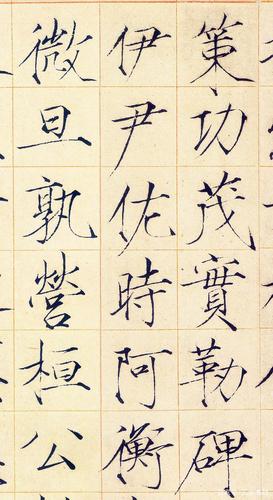 策功茂實勒碑
伊尹佐時阿衡
微旦孰營桓公